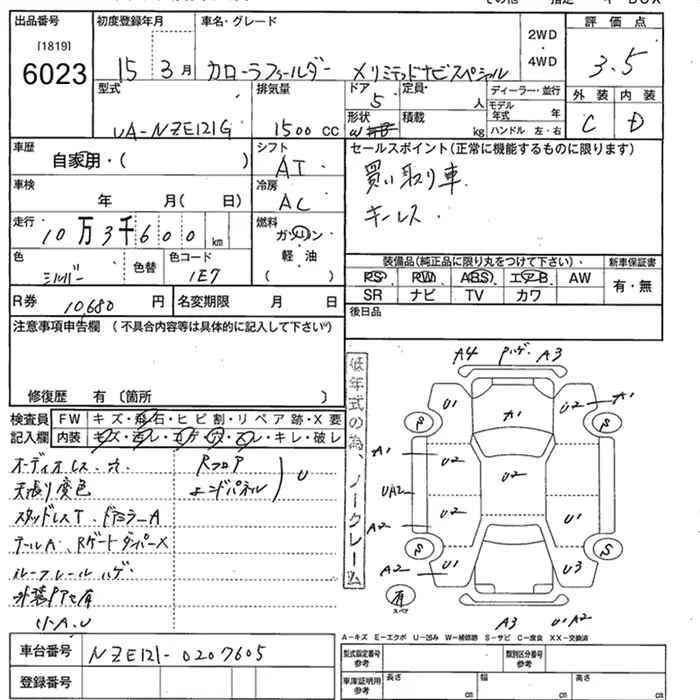 出品番号
[1819]
6023
初度登録年月
15年 3月
車名・グレード
カローラフィールダー Xリミテッドナビスペシャル
2WD
・
4WD
評価点
3.5
外装 内装
C D
型式
UA-NZE121G
排気量
1500 cc
ドア
5
形状
W
定員
人
積載
kg
ディーラー・並行
モデル年式 年
ハンドル 左・右
車歴
自家用・( )
シフト
AT
車検
年 月( 日)
冷房
AC
走行
10万3千600 km
燃料
ガソリン
軽油
( )
色
シルバー
色替
色コード
1E7
R券
10,680 円
名変期限 月 日
セールスポイント(正常に機能するものに限ります)
買い取り車
キーレス
装備品(純正品に限り丸をつけて下さい)
PS PW ABS エアB AW
SR ナビ TV カワ
新車保証書
有・無
後日品
注意事項申告欄 (不具合内容等は具体的に記入して下さい)
修復歴 有 〔箇所 〕
検査員記入欄
FW キズ・飛石・ヒビ割・リペア跡・X要
内装 キズ・汚レ・コゲ・穴・スレ・キレ・破レ
オーディオレス・穴
天張り変色
Rフロア
エンドパネル
U
スタッドレスT、ドアミラーA
テールA、RゲートダンパーX
ルーフレールハゲ
外装PアセA有
リ・A、U
低年式の為、ノークレーム
A4 ハゲ A3
U1 A1 U2 A1
S S
A1
U2
U2
UA2
U2 U1
A2
S S
A2 U1 U3
有
スペア
A3 U1 A2
A-キズ E-エクボ U-凹み W-補修跡 S-サビ C-腐食 XX-交換済
車台番号
NZE121-0207605
登録番号
型式指定番号
参考
類別区分番号
参考
車庫証明用
参考
長さ cm
幅 cm
高さ cm